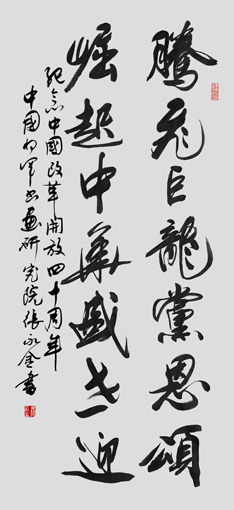 騰飛巨龍黨恩頌
崛起中華盛世迎
紀念中國改革開放四十周年
中國將軍書畫研究院張永金書